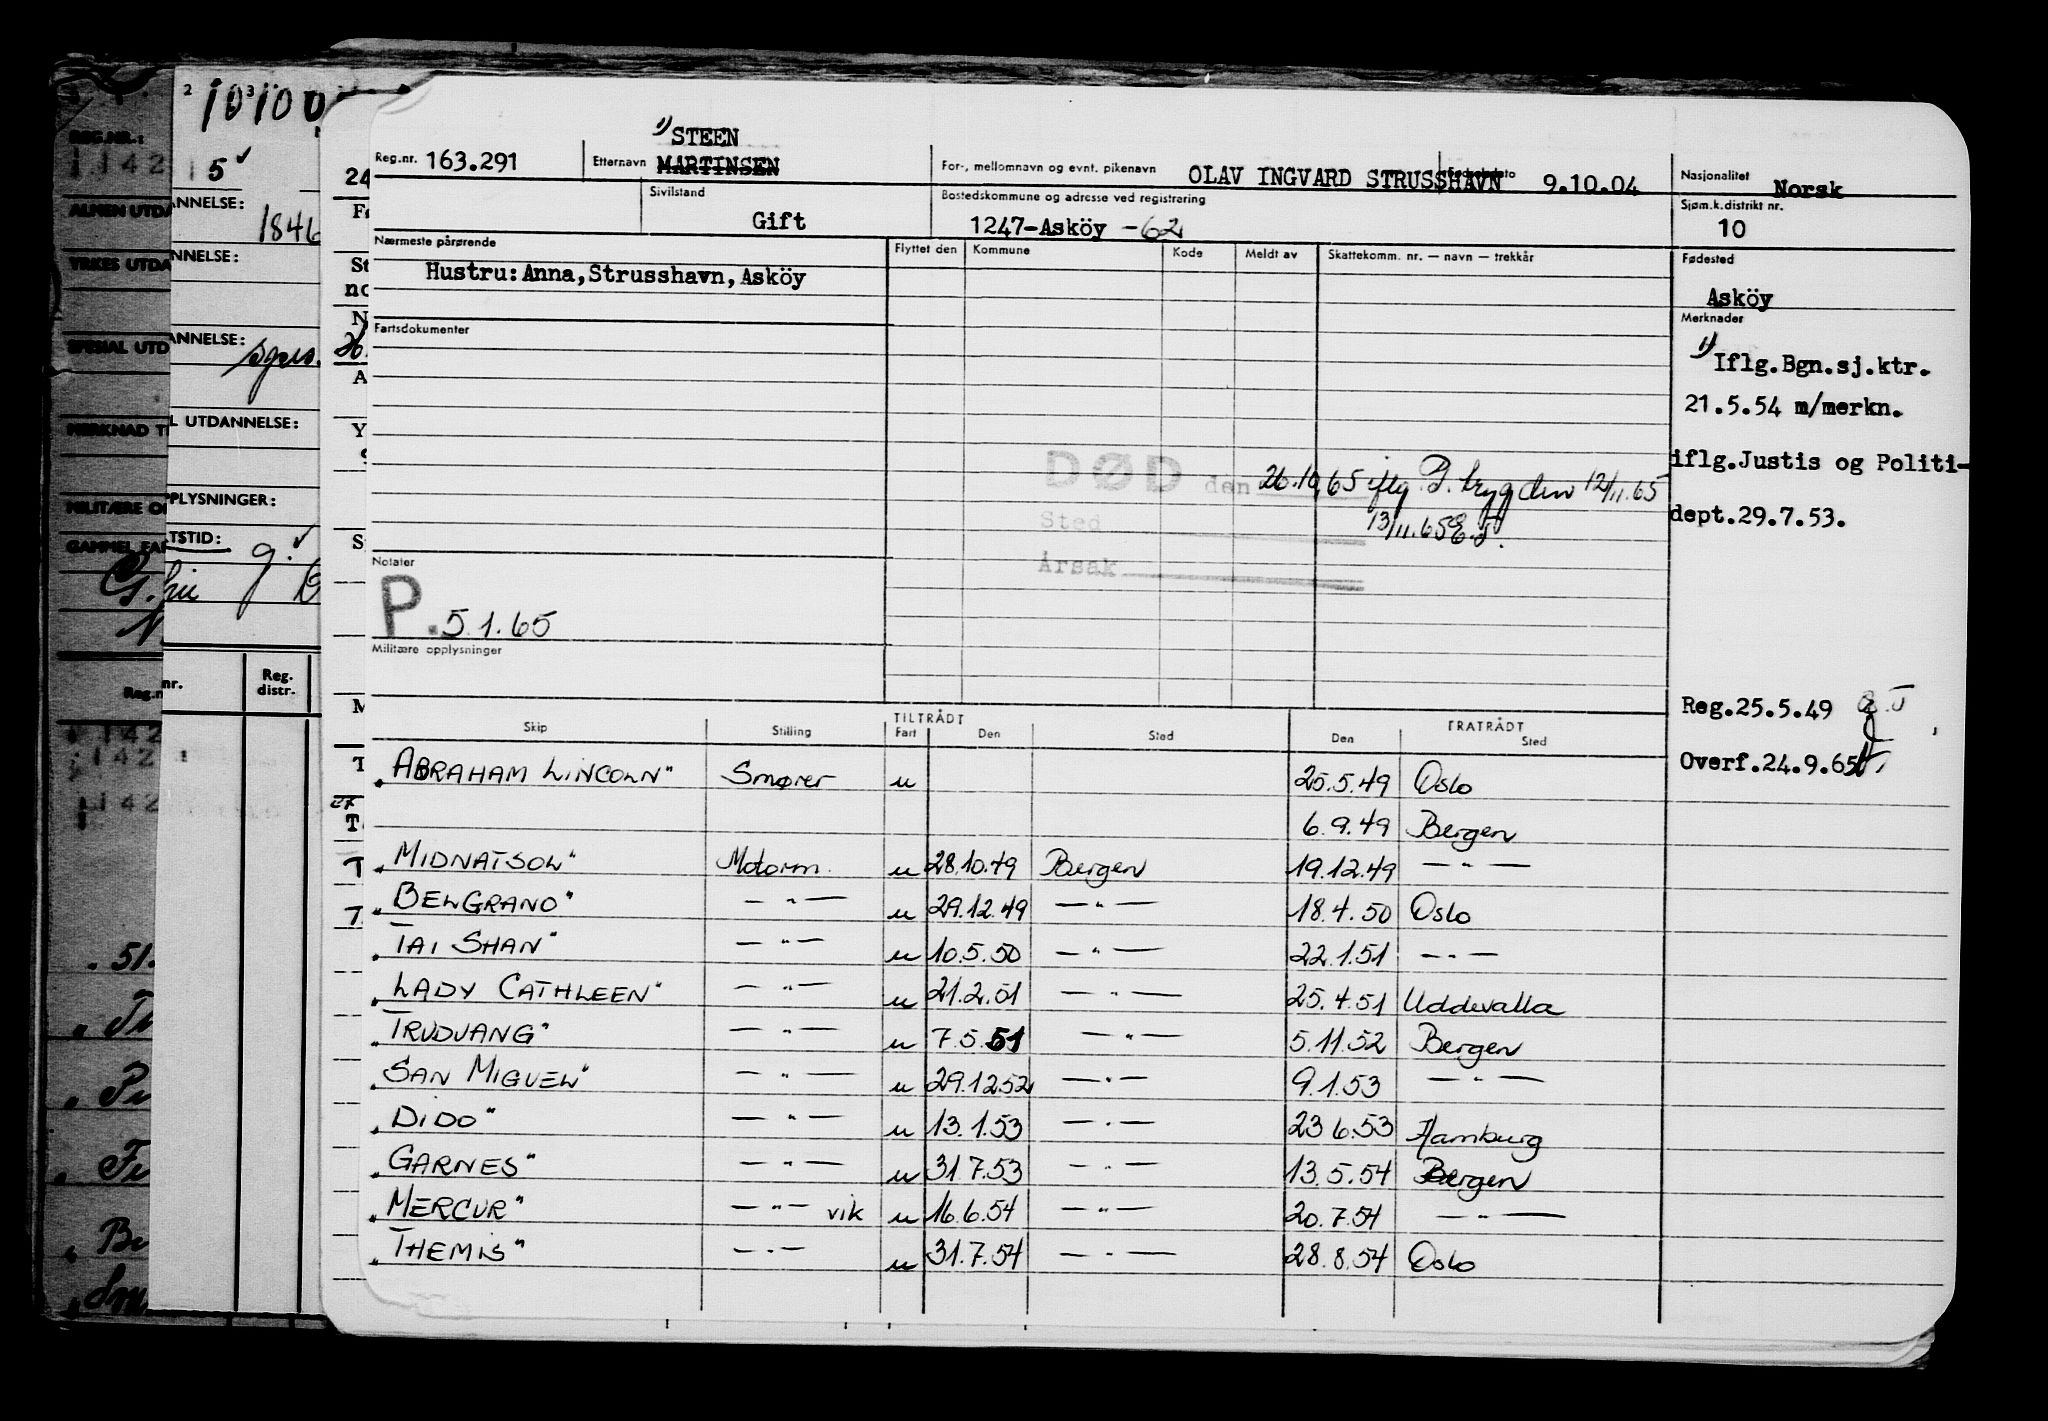 1) STEEN
Reg.nr. 163.291 Etternavn MARTINSEN For-, mellomnavn og evnt. pikenavn OLAV INGVARD STRUSSHAVN 9.10.04 Nasjonalitet Norsk
Sivilstand Gift Bostedskommune og adresse ved registrering 1247-Asköy -62 Sjøm.k.distrikt nr. 10
Nærmeste pårørende Flyttet den Kommune Kode Meldt av Skattekomm. nr. — navn — trekkår Fødested
Hustru: Anna, Strusshavn, Asköy
Asköy
Fartsdokumenter
Merknader
1) Iflg.Bgn.sj.ktr.
21.5.54 m/merkn.
iflg.Justis og Politi-
dept.29.7.53.
DØD den 26.10.65 iflg. P. trygden 12/11.65
Sted 13/11.65
Årsak
Notater
P. 5.1.65
Militære opplysninger
Reg.25.5.49
Overf.24.9.65
TILTRÅDT FRATRÅDT
Skip Stilling Fart Den Sted Den Sted
"ABRAHAM LINCOLN" Smører u 25.5.49 Oslo
6.9.49 Bergen
"MIDNATSOL" Motorm. u 28.10.49 Bergen 19.12.49 — " —
"BELGRANO" — " — u 29.12.49 — " — 18.4.50 Oslo
"TAI SHAN" — " — u 10.5.50 — " — 22.1.51 — " —
"LADY CATHLEEN" — " — u 21.2.51 — " — 25.4.51 Uddevalla
"TRUDVANG" — " — u 7.5.51 — " — 5.11.52 Bergen
"SAN MIGUEL" — " — u 29.12.52 — " — 9.1.53 — " —
"DIDO" — " — u 13.1.53 — " — 23.6.53 Hamburg
"GARNES" — " — u 31.7.53 — " — 13.5.54 Bergen
"MERCUR" — " — vik u 16.6.54 — " — 20.7.54 — " —
"THEMIS" — " — u 31.7.54 — " — 28.8.54 Oslo
2 3
10100
REG.NR.:
1142
5
ANNELSE:
1846
ALMEN UTDA
YRKES UTDA
NNELSE:
SPESIAL UTD
ANNELSE:
MERKNAD T
L UTDANNELSE:
MILITÆRE O
PPLYSNINGER:
GAMMEL FA
TSTID:
nr. Reg. distr.
142
142
142
51.
24